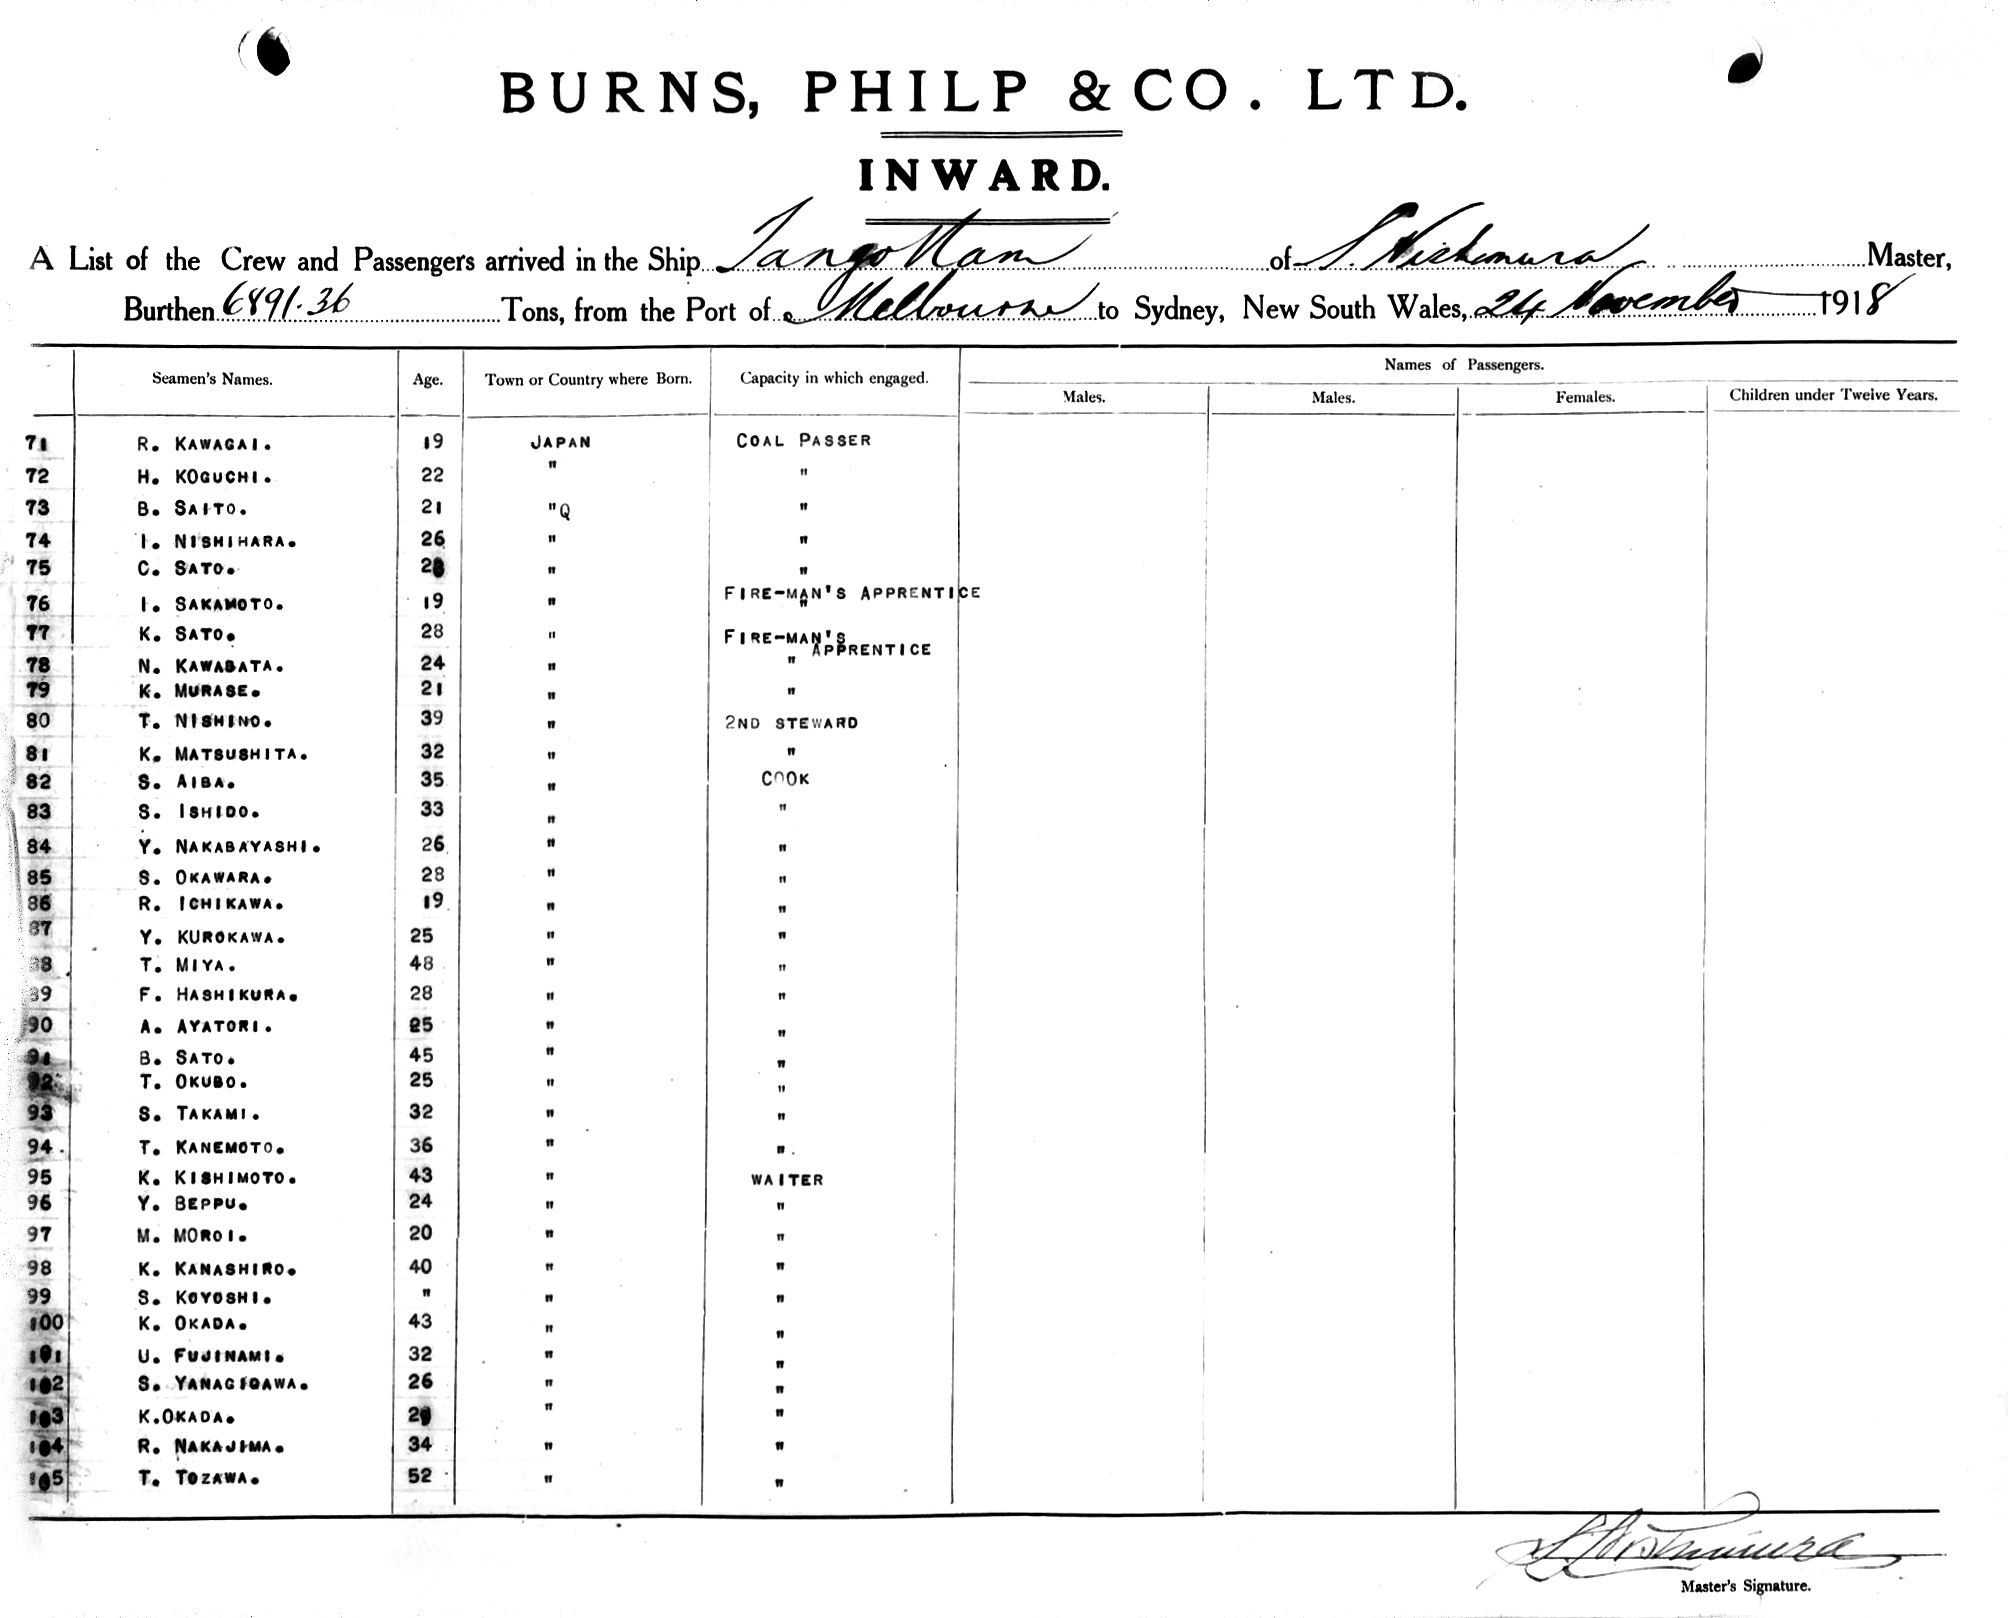 BURNS, PHILP & CO. LTD.
INWARD.
A List of the Crew and Passengers arrived in the Ship Tango Mam of S. Nishimura Master,
Burthen 6891.36 Tons, from the Port of Melbourne to Sydney, New South Wales, 24 November 1918
Seamen's Names. Age. Town or Country where Born. Capacity in which engaged. Names of Passengers.
Males. Males. Females. Children under Twelve Years.
71 R. KAWAGAI. 19 JAPAN COAL PASSER
72 H. KOGUCHI. 22 " "
73 B. SAITO. 21 "Q "
74 I. NISHIHARA. 26 " "
75 C. SATO. " "
76 I. SAKAMOTO. 19 " FIRE-MAN'S APPRENTICE
77 K. SATO. 28 " FIRE-MAN'S APPRENTICE
78 N. KAWABATA. 24 " "
79 K. MURASE. 21 " "
80 T. NISHINO. 39 " 2ND STEWARD
81 K. MATSUSHITA. 32 " "
82 S. AIBA. 35 " COOK
83 S. ISHIDO. 33 " "
84 Y. NAKABAYASHI. 26 " "
85 S. OKAWARA. 28 " "
86 R. ICHIKAWA. 19 " "
87 Y. KUROKAWA. 25 " "
88 T. MIYA. 48 " "
89 F. HASHIKURA. 28 " "
90 A. AYATORI. 25 " "
91 B. SATO. 45 " "
92 T. OKUBO. 25 " "
93 S. TAKAMI. 32 " "
94. T. KANEMOTO. 36 " "
95 K. KISHIMOTO. 43 " WAITER
96 Y. BEPPU. 24 " "
97 M. MOROI. 20 " "
98 K. KANASHIRO. 40 " "
99 S. KOYOSHI. " " "
100 K. OKADA. 43 " "
101 U. FUJINAMI. 32 " "
102 S. YANAGIGAWA. 26 " "
103 K.OKADA. " "
104 R. NAKAJIMA. 34 " "
105 T. TOZAWA. 52 " "
S. Nishimura
Master's Signature.